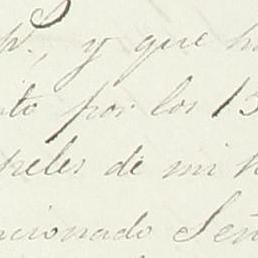 p., y que h
ito por los 15
peles de mi h
ncionado Señ